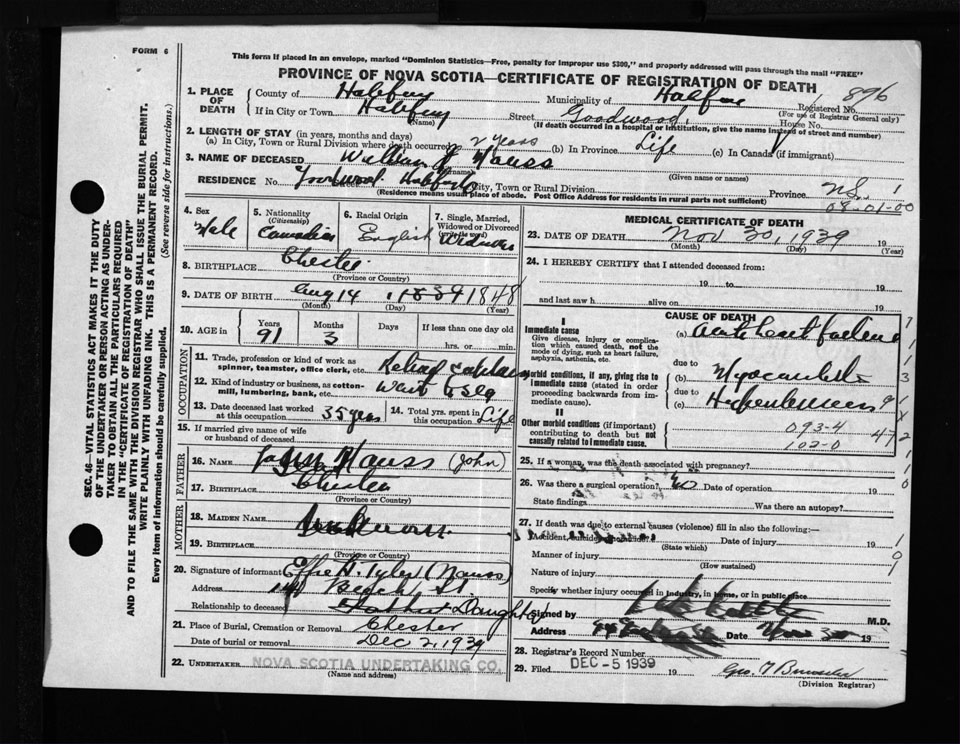 FORM 6
This form if placed in an envelope, marked "Dominion Statistics—Free, penalty for improper use $300," and properly addressed will pass through the mail "FREE"
PROVINCE OF NOVA SCOTIA—CERTIFICATE OF REGISTRATION OF DEATH
1. PLACE OF DEATH
County of Halifax Municipality of Halifax Registered No. 896
(For use of Registrar General only)
If in City or Town Halifax (Name) Street Goodwood, House No.
(If death occurred in a hospital or institution, give the name instead of street and number)
2. LENGTH OF STAY (in years, months and days)
(a) In City, Town or Rural Division where death occurred 2 years (b) In Province Life (c) In Canada (if immigrant)
3. NAME OF DECEASED William J Nauss
(Surname) (Given name or names)
RESIDENCE No. Goodwood Halifax City, Town or Rural Division Province N.S. 1
(Residence means usual place of abode. Post Office Address for residents in rural parts not sufficient)
08-01-00
4. Sex Male
5. Nationality (Citizenship) Canadian
6. Racial Origin English
7. Single, Married, Widowed or Divorced (write the word) Widower
8. BIRTHPLACE Chester
(Province or Country)
9. DATE OF BIRTH Aug 14 1848
(Month) (Day) (Year)
10. AGE in Years 91 Months 3 Days If less than one day old hrs. or min.
OCCUPATION
11. Trade, profession or kind of work as spinner, teamster, office clerk, etc. Retired
12. Kind of industry or business, as cotton-mill, lumbering, bank, etc. Went to Sea
13. Date deceased last worked at this occupation 35 years
14. Total yrs. spent in this occupation Life
15. If married give name of wife or husband of deceased
FATHER
16. NAME John Nauss (John)
17. BIRTHPLACE Chester
(Province or Country)
MOTHER
18. MAIDEN NAME
19. BIRTHPLACE
(Province or Country)
20. Signature of informant Effie H. Tyler (Nauss)
Address
Relationship to deceased Daughter
21. Place of Burial, Cremation or Removal Chester
Date of burial or removal Dec 2, 1939
22. UNDERTAKER NOVA SCOTIA UNDERTAKING CO.
(Name and address)
MEDICAL CERTIFICATE OF DEATH
23. DATE OF DEATH Nov 30, 1939 19
(Month) (Day) (Year)
24. I HEREBY CERTIFY that I attended deceased from:
19 to 19
and last saw h alive on 19
CAUSE OF DEATH
I
Immediate cause
Give disease, injury or complication which caused death, not the mode of dying, such as heart failure, asphyxia, asthenia, etc.
(a) Acute heart failure
due to
Morbid conditions, if any, giving rise to immediate cause (stated in order proceeding backwards from immediate cause).
(b) Myocarditis
due to
(c)
II
Other morbid conditions (if important) contributing to death but not causally related to immediate cause.
093-4
102-0
25. If a woman, was the death associated with pregnancy?
26. Was there a surgical operation? No Date of operation 19
State findings Was there an autopsy?
27. If death was due to external causes (violence) fill in also the following:—
Accident, suicide or homicide? Date of injury 19
(State which)
Manner of injury
(How sustained)
Nature of injury
Specify whether injury occurred in industry, in home, or in public place
Signed by M.D.
Address Date Nov 30 19
28. Registrar's Record Number
29. Filed DEC - 5 1939 19
(Division Registrar)
SEC. 46—VITAL STATISTICS ACT MAKES IT THE DUTY
OF THE UNDERTAKER OR PERSON ACTING AS UNDER-
TAKER TO OBTAIN ALL THE PARTICULARS REQUIRED
IN THE "CERTIFICATE OF REGISTRATION OF DEATH"
AND TO FILE THE SAME WITH THE DIVISION REGISTRAR WHO SHALL ISSUE THE BURIAL PERMIT.
WRITE PLAINLY WITH UNFADING INK. THIS IS A PERMANENT RECORD.
Every item of information should be carefully supplied.
(See reverse side for instructions.)